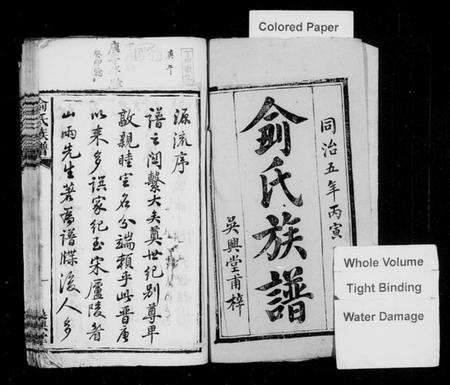 Colored Paper
同治五年丙寅
俞氏族譜
吳興堂甫梓
Whole Volume
Tight Binding
Water Damage
源流序
譜之関繫大矣奠世紀別尊卑
敦親睦定名分端賴乎此晉唐
以来多譔家紀至宋廬陵者
山兩先生著為譜牒後人多
俞氏族譜